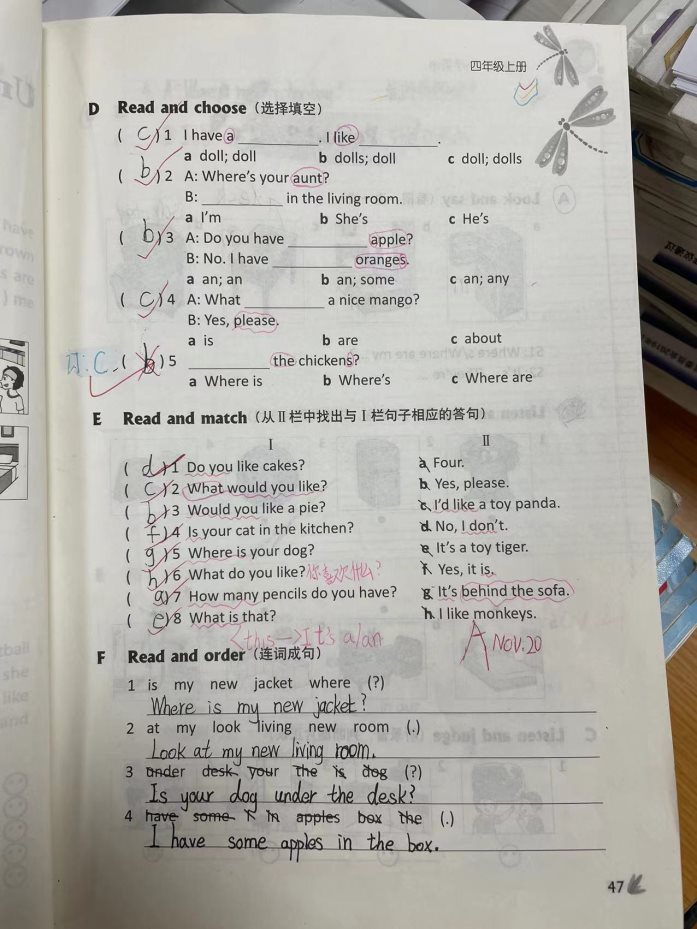 四年级上册
D Read and choose (选择填空)
( c ) 1 I have a ________. I like ________.
a doll; doll b dolls; doll c doll; dolls
( b ) 2 A: Where's your aunt?
B: ________ in the living room.
a I'm b She's c He's
( b ) 3 A: Do you have ________ apple?
B: No. I have ________ oranges.
a an; an b an; some c an; any
( c ) 4 A: What ________ a nice mango?
B: Yes, please.
a is b are c about
订: C. ( b ) 5 ________ the chickens?
a Where is b Where's c Where are
E Read and match (从Ⅱ栏中找出与Ⅰ栏句子相应的答句)
Ⅰ Ⅱ
( d ) 1 Do you like cakes? a Four.
( c ) 2 What would you like? b Yes, please.
( b ) 3 Would you like a pie? c I'd like a toy panda.
( f ) 4 Is your cat in the kitchen? d No, I don't.
( g ) 5 Where is your dog? e It's a toy tiger.
( h ) 6 What do you like? 你喜欢什么? f Yes, it is.
( a ) 7 How many pencils do you have? g It's behind the sofa.
( e ) 8 What is that? h I like monkeys.
this → It's a/an A Nov.20
F Read and order (连词成句)
1 is my new jacket where (?)
Where is my new jacket?
2 at my look living new room (.)
Look at my new living room.
3 under desk your the is dog (?)
Is your dog under the desk?
4 have some I in apples box the (.)
I have some apples in the box.
47